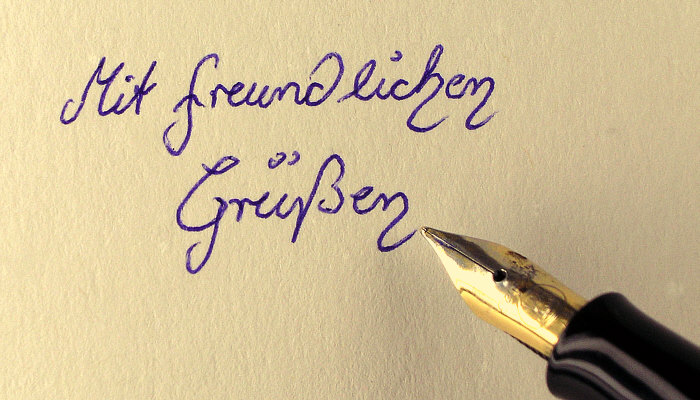 Mit freundlichen
Grüßen